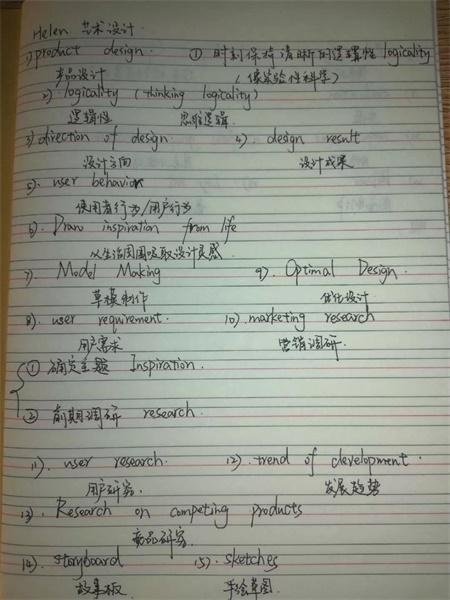 Helen 艺术设计
1) product design. ① 时刻保持清晰的逻辑性 logicality
产品设计 (像实验性科学)
2) logicality (thinking logicality)
逻辑性 思维逻辑
3) direction of design. 4). design result
设计方向 设计成果
5). user behavior
使用者行为/用户行为
6). Draw inspiration from life
从生活周围吸取设计灵感
7). Model Making 9). Optimal Design.
草模制作 优化设计
8). user requirement. 10). marketing research
用户需求 营销调研.
① 确定主题 Inspiration.
② 前期调研 research.
11). user research. 12). trend of development.
用户研究. 发展趋势
13). Research on competing products
竞品研究.
14). storyboard 15). sketches
故事板 手绘草图.